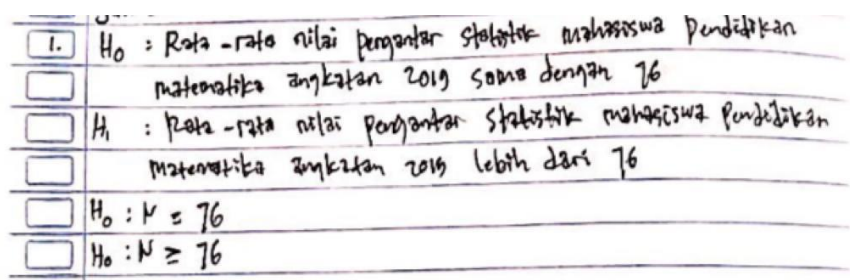 1. H₀ : Rata-rata nilai pengantar statistik mahasiswa Pendidikan
matematika angkatan 2019 sama dengan 76
H₁ : Rata-rata nilai pengantar statistik mahasiswa Pendidikan
Matematika angkatan 2019 lebih dari 76
H₀ : μ = 76
H₀ : μ ≥ 76